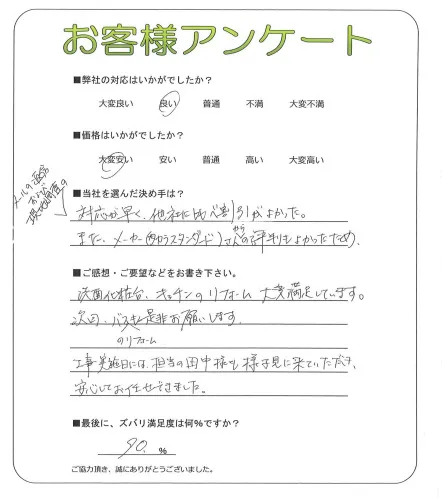 お客様アンケート
■弊社の対応はいかがでしたか?
大変良い 良い 普通 不満 大変不満
■価格はいかがでしたか?
大変安い 安い 普通 高い 大変高い
■当社を選んだ決め手は?
メールの返答
および
現地調査の
対応が早く、他社に比べ割引がよかった。
また、メーカー(タカラスタンダード)さんからの評判もよかったため、
■ご感想・ご要望などをお書き下さい。
洗面化粧台、キッチンのリフォーム 大変満足しています。
次回、バスも是非お願いします。
のリフォーム
工事実施日には、担当の田中様も様子見に来ていただき、
安心してお任せできました。
■最後に、ズバリ満足度は何%ですか?
90. %
ご協力頂き、誠にありがとうございました。